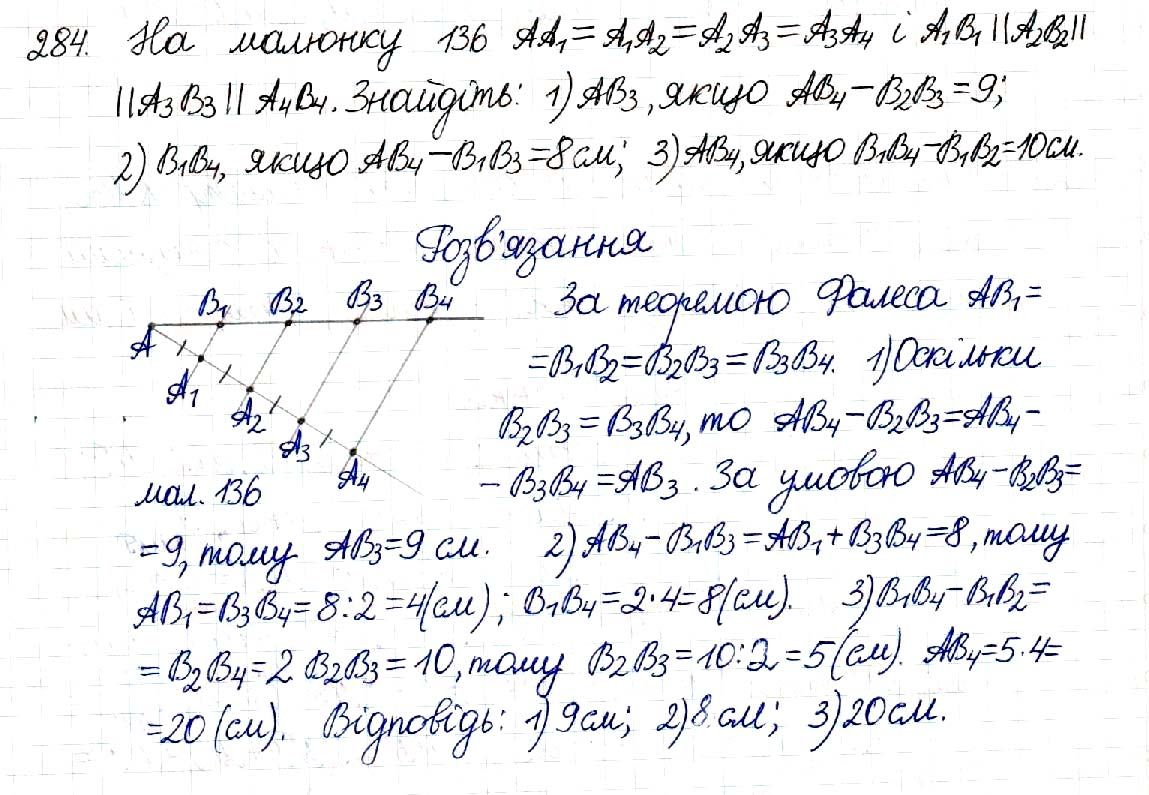 284. На малюнку 136 AA₁ = A₁A₂ = A₂A₃ = A₃A₄ і A₁B₁ || A₂B₂ ||
|| A₃B₃ || A₄B₄. Знайдіть: 1) AB₃, якщо AB₄ – B₂B₃ = 9;
2) B₁B₄, якщо AB₄ – B₁B₃ = 8 см; 3) AB₄, якщо B₁B₄ – B₁B₂ = 10 см.
Розв'язання
B₁ B₂ B₃ B₄
A
A₁
A₂
A₃
A₄
мал. 136
За теоремою Фалеса AB₁ =
= B₁B₂ = B₂B₃ = B₃B₄. 1) Оскільки
B₂B₃ = B₃B₄, то AB₄ – B₂B₃ = AB₄ –
– B₃B₄ = AB₃. За умовою AB₄ – B₂B₃ =
= 9, тому AB₃ = 9 см. 2) AB₄ – B₁B₃ = AB₁ + B₃B₄ = 8, тому
AB₁ = B₃B₄ = 8 : 2 = 4 (см); B₁B₄ = 2 · 4 = 8 (см). 3) B₁B₄ – B₁B₂ =
= B₂B₄ = 2 B₂B₃ = 10, тому B₂B₃ = 10 : 2 = 5 (см). AB₄ = 5 · 4 =
= 20 (см). Відповідь: 1) 9 см; 2) 8 см; 3) 20 см.